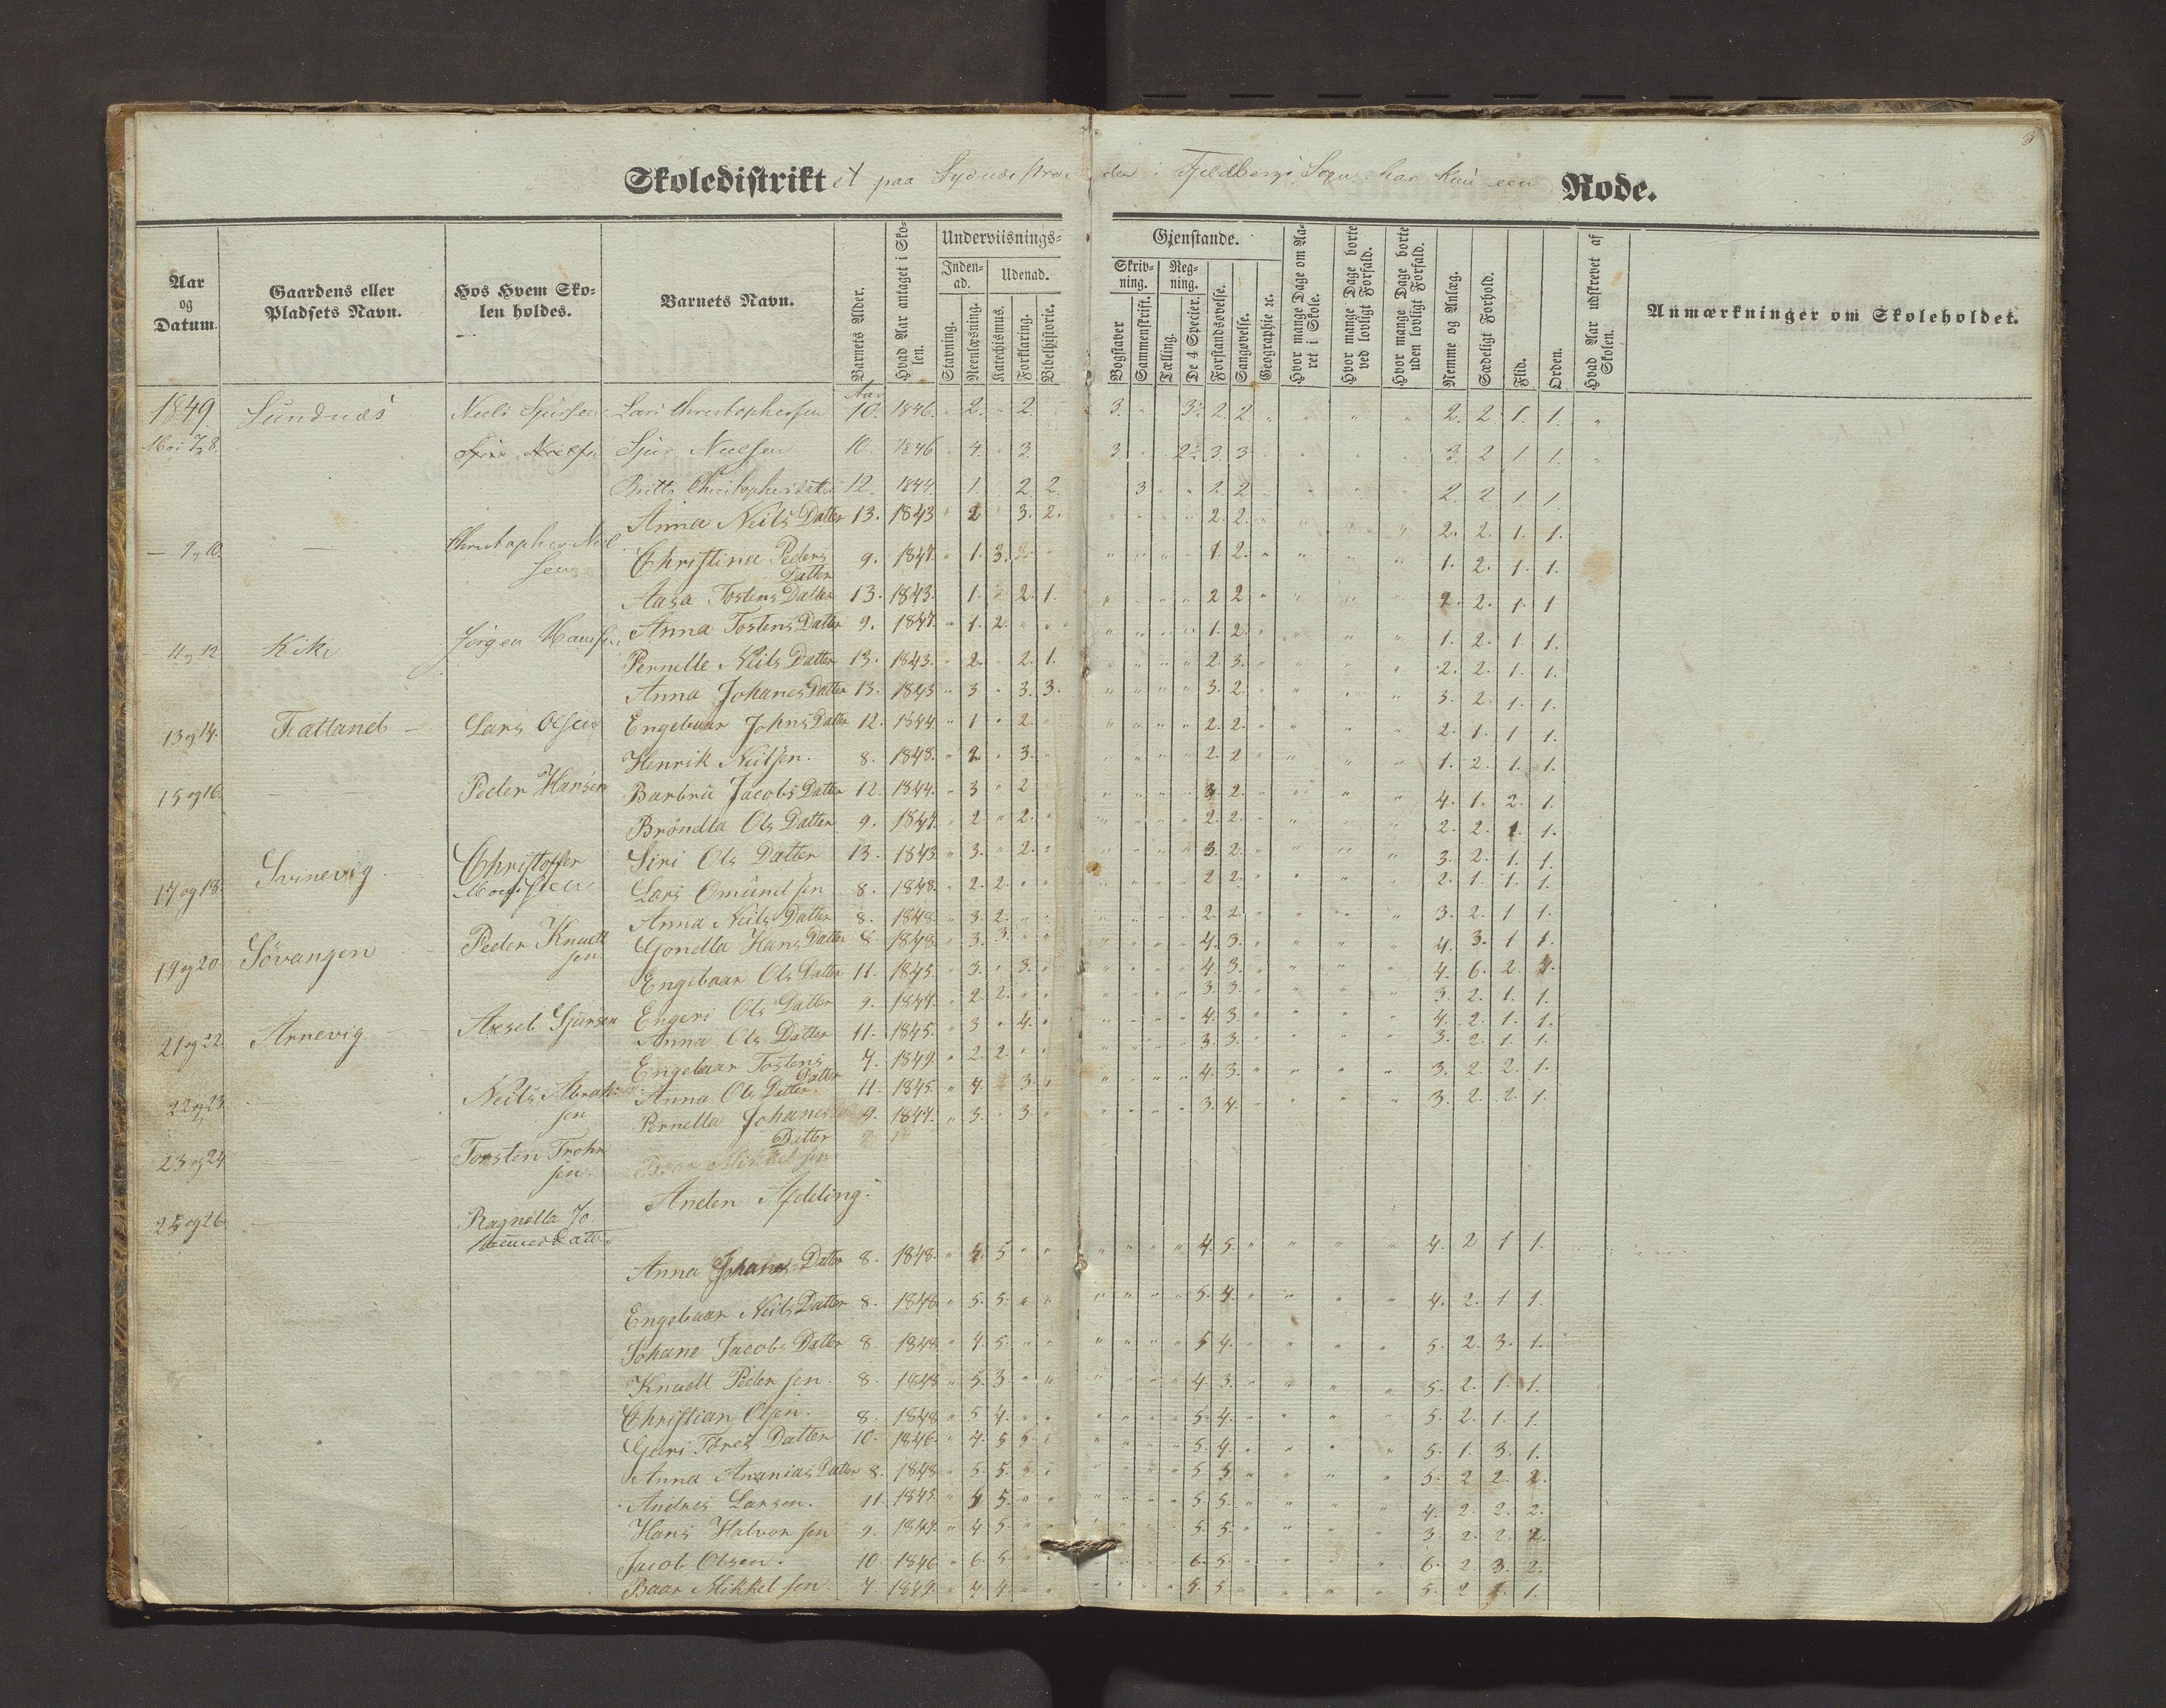 3
Skoledistriktet paa Sydnæsstranden i Fjeldbergs Sogn har kun een Rode.
Aar og Datum.
Gaardens eller Pladsets Navn.
Hos Hvem Skolen holdes.
Barnets Navn.
Barnets Alder.
Hvad Aar antaget i Skolen.
Underviisnings-Gjenstande.
Indenad.
Udenad.
Stavning.
Reenlæsning.
Katechismus.
Forklaring.
Bibelhistorie.
Skrivning.
Regning.
Bogstaver
Sammenskrift.
Tælling.
De 4 Specier.
Forstandsøvelse.
Sangøvelse.
Geographie ec.
Hvor mange Dage om Aaret i Skole.
Hvor mange Dage borte ved lovligt Forfald.
Hvor mange Dage borte uden lovligt Forfald.
Nemme og Anlæg.
Sædeligt Forhold.
Flid.
Orden.
Hvad Aar udskrevet af Skolen.
Anmærkninger om Skoleholdet.
Aar
1849. Sundnæs Neels Sjursen Lars Christophersen 10. 1846. 2. 2. 3. 3½ 2. 2. 2. 2. 1. 1.
7 8. Sjur Neelsen 10. 1846 4. 3. 3 2½ 3. 3 3. 2 1 1.
Britta Christophersdatter 12. 1844. 1. 2. 2. 3 2. 2. 2. 2. 1 1
Anna Neils Datter 13. 1843 2 3. 2. 2. 2. 2. 2. 1. 1.
9 10. Christopher Neelsen Christina Peders Datter 9. 1847. 1. 3. 1. 2. 1. 2. 1. 1.
Aasa Tostens Datter 13. 1843. 1. 2. 1. 2 2 2. 2. 1. 1
Anna Tostens Datter 9. 1847. 1. 2. 1. 2. 1. 2. 1 1.
11 12 Kike Jörgen Hansen Pernelle Neils Datter 13. 1843. 2. 2. 1. 2. 3. 2. 2. 1. 1.
Anna Johanes Datter 13. 1843 3 3. 3. 3. 2. 3. 2. 1. 1.
13 og 14. Fatland Lars Olsen Engebaar Johns Datter 12. 1844 1 2. 2. 2. 2. 1. 1 1.
Henrik Neilsen. 8. 1848. 2. 3. 2. 2 1. 2. 1. 1.
15 og 16. Peder Hansen Barbra Jacobs Datter 12. 1844. 3 2 3. 2. 4. 1. 2. 1.
Bröndla Ols Datter 9. 1847. 2. 2. 2. 2. 2. 2. 1. 1.
17 og 18. Svinevig Christoffer Siri Ols Datter 13. 1843 3. 2. 3. 2. 3. 2. 1. 1.
Lars Omundsen 8. 1848. 2. 2. 2 2. 2. 1. 1. 1.
Anna Neils Datter 8. 1848. 3. 2. 2. 2. 3. 2. 1 1.
19 og 20. Sövangen Peder Knudtsen Gondla Hans Datter 8. 1848. 3. 3. 4. 3. 4. 3. 1 1.
Engebaar Ols Datter 11. 1845. 3. 3. 4. 3. 4. 6. 2. 1.
Engeri Ols Datter 9. 1847. 2. 2. 3. 3. 3. 2. 1. 1.
21 og 22 Arnevig Axsel Sjursen Anna Ols Datter 11. 1845. 3 4. 4. 3. 4. 2. 1. 1.
Engebaar Tostens Datter 7. 1849. 2. 2. 3. 3. 3. 2. 1. 1.
22 og 23 Neils Abrahamsen Anna Ols Datter. 11. 1845. 4. 3. 4. 3. 3. 2. 2. 1.
Pernella Johanes Datter 9. 1847. 3. 3. 3. 4. 3. 2. 2. 1.
23 og 24 Torsten Trohnsen Baar Mikkelsen
Anden Afdeling.
25 og 26 Ragnella Johannesdatter
Anna Johanes Datter 8. 1848. 4. 5 4. 5. 4. 2 1 1.
Engebaar Neils Datter 8. 1848 5. 5. 5. 4. 4. 2. 1 1.
Johane Jacobs Datter 8. 1848 4. 5. 5 4. 5. 2. 3. 1.
Knudt Pedersen. 8. 1848 5. 3. 4. 3. 5. 2. 1. 1.
Christian Olsen. 8. 1848 5 4. 5. 4. 5. 2. 1. 1.
Guri Töres Datter 10. 1846. 4. 5 5. 5. 4. 5. 1. 3. 1.
Anna Ananias Datter 8. 1848 5. 5. 5. 5. 5. 2 2. 2.
Andres Larsen. 11. 1845. 4 5. 5. 5. 4. 2. 2. 2.
Hans Halvorsen 9. 1847. 4 5. 5. 5. 3. 2. 2. 2.
Jacob Olsen. 10. 1846 6. 5. 6. 5. 6. 2. 3. 2.
Baar Mikkelsen. 7. 1849. 4. 4. 5. 5. 5. 2 2. 1.